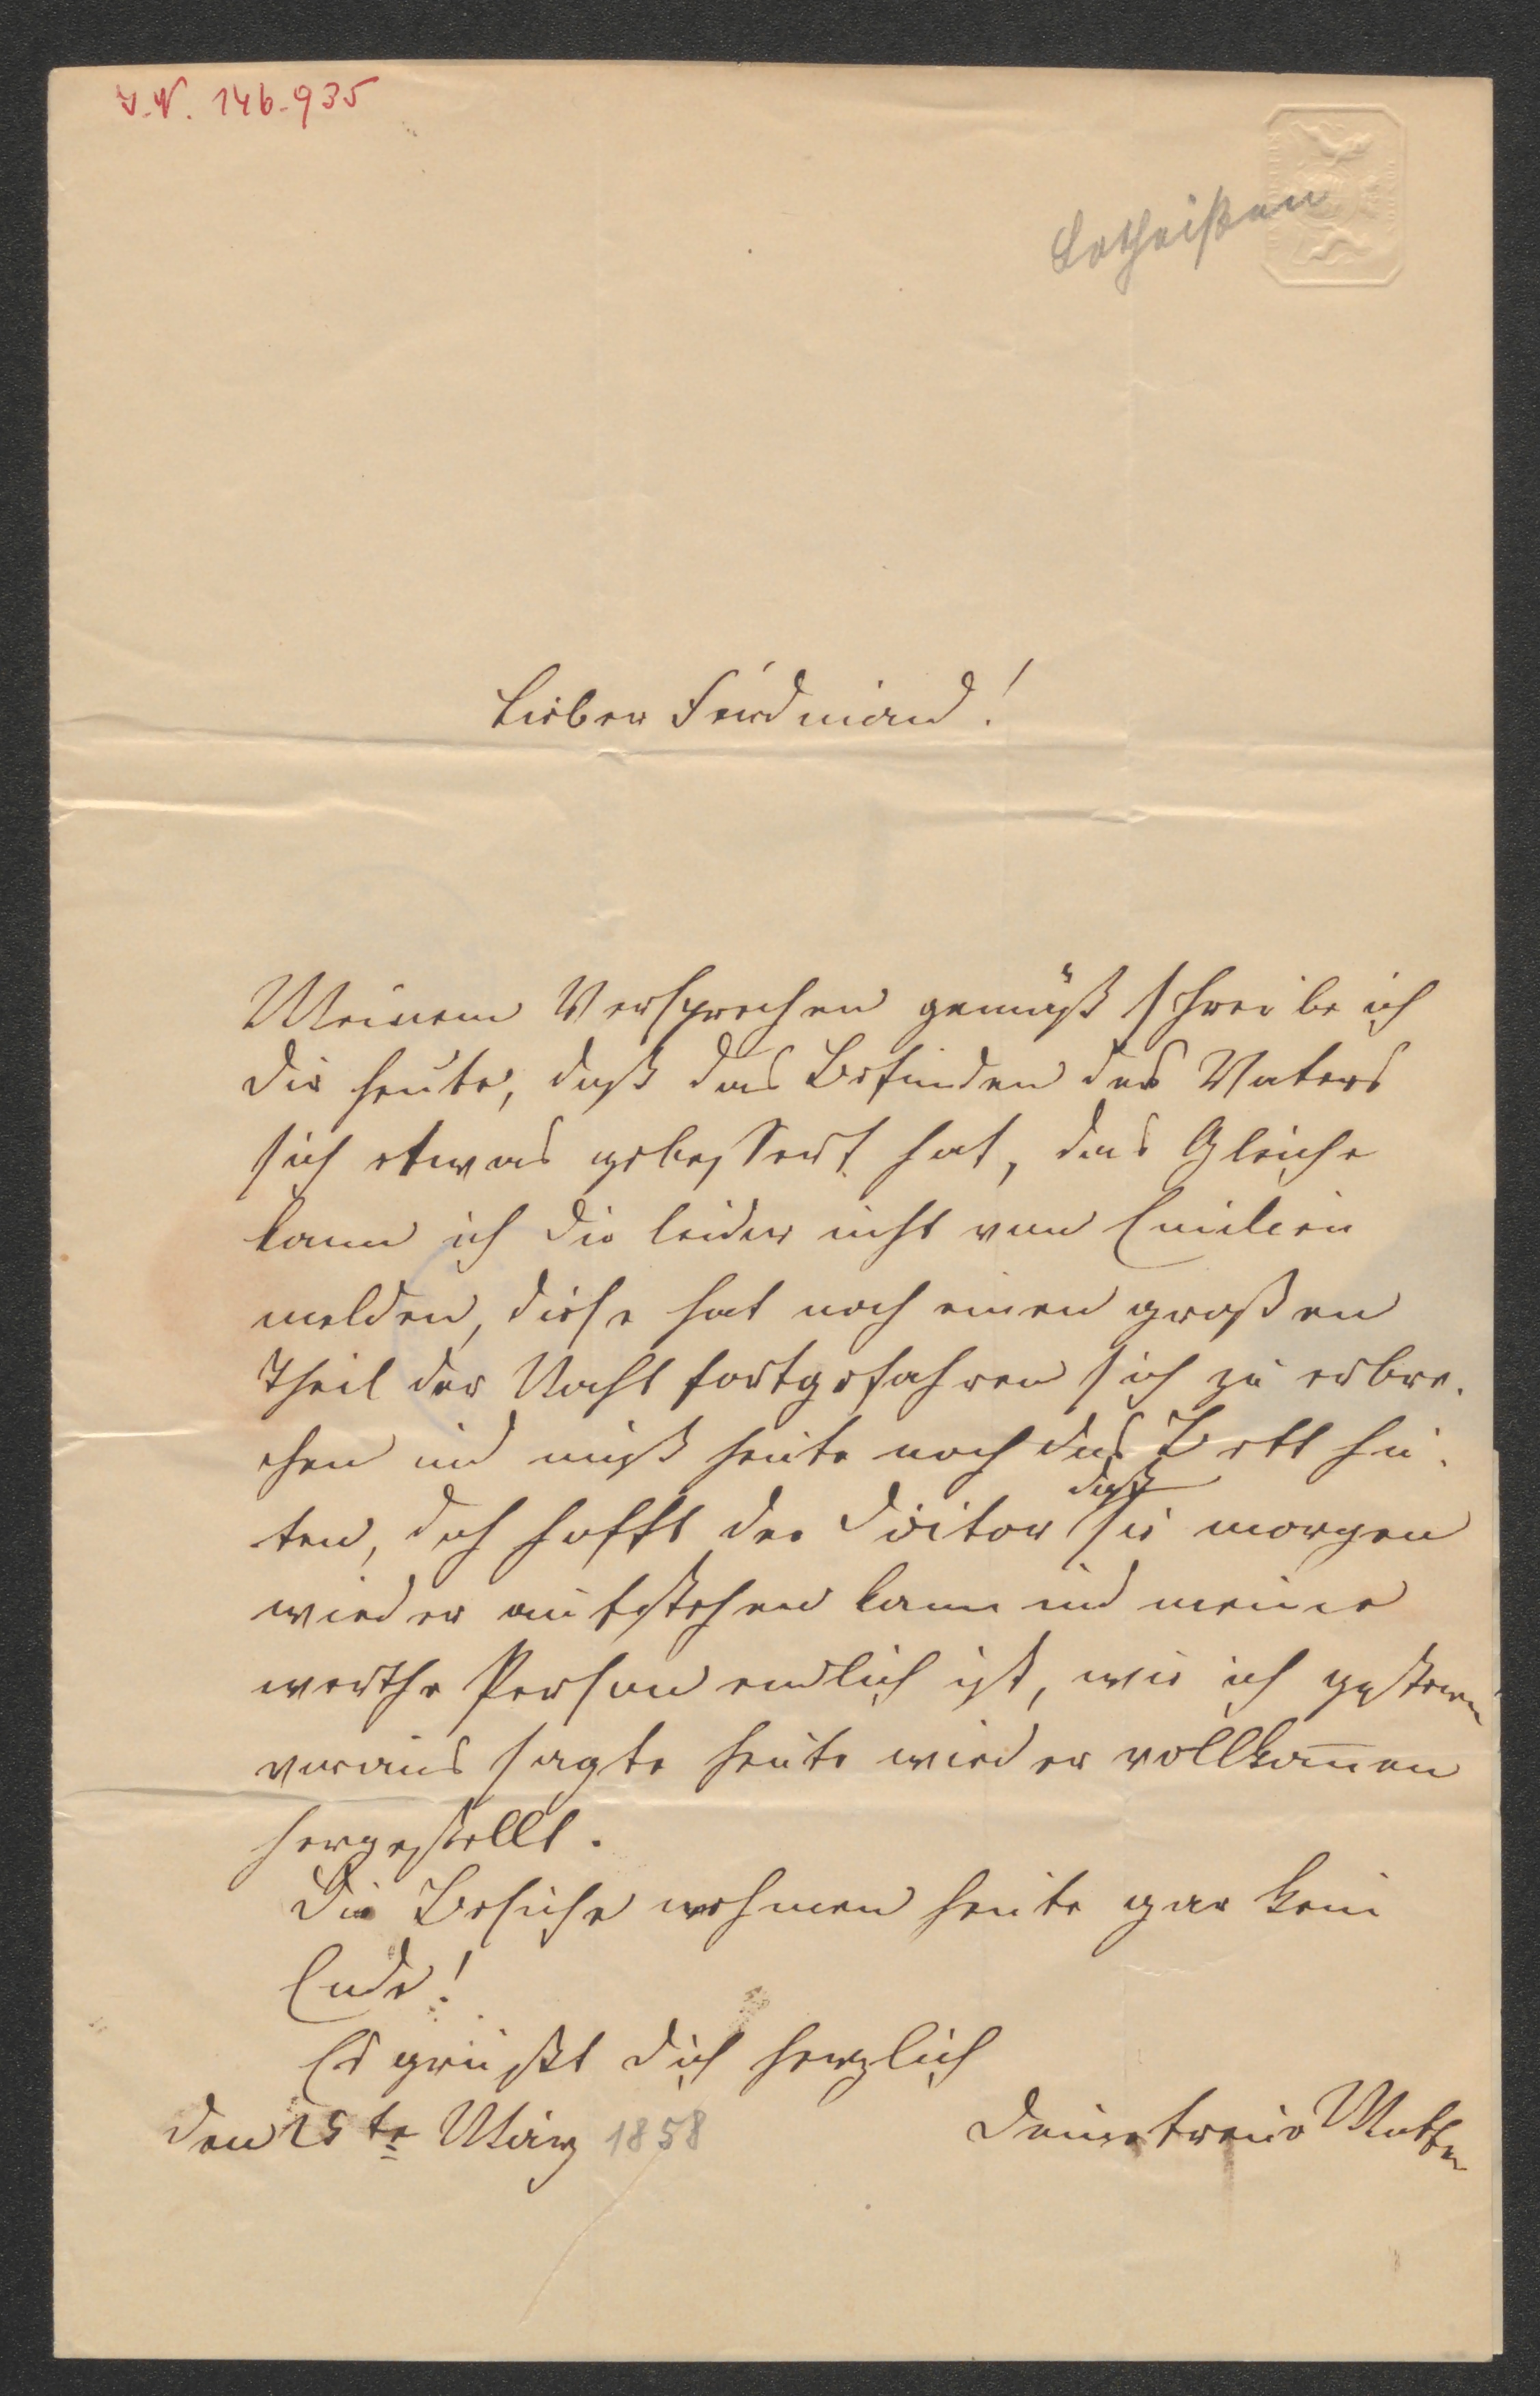 I.N. 146.935
Lotheißen
Lieber Ferdinand!
Meinem Versprechen gemäß schreibe ich
Dir heute, daß das Befinden des Vaters
sich etwas gebessert hat, das Gleiche
kann ich Dir leider nicht von Emilien
melden, diese hat noch einen großen
Theil der Nacht fortgefahren sich zu erbre-
chen und muß heute noch das Bett hü-
ten, doch hofft der Docktor daß sie morgen
wieder aufstehen kann und meine
werthe Person endlich ist, wie ich gestern
voraus sagte heute wieder vollkom̅en
hergestellt.
Die Besuche nehmen heute gar kein
Ende!
Es grüßt Dich herzlich
Deine treue Mutter
den 25te März 1858